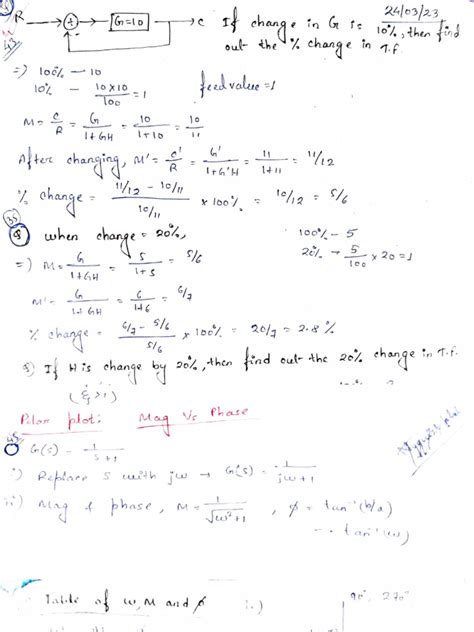 24/03/23
R → + → G=10 → C If change in G is 10%, then find
out the % change in T.f
=) 100% — 10
10% — 10×10/100 = 1 feed value = 1
M = C/R = G/1+GH = 10/1+10 = 10/11
After changing, M' = C'/R = G'/1+G'H = 11/1+11 = 11/12
% change = 11/12 - 10/11 / 10/11 × 100% = 10/12 = 5/6
Q when change = 20%, 100% - 5
=) M = G/1+GH = 5/1+5 = 5/6 20% → 5/100 × 20 = 1
M' = G/1+GH = 6/1+6 = 6/7
% change = 6/7 - 5/6 / 5/6 × 100% = 20/7 = 2.8%
If H is change by 20%, then find out the 20% change in T.f.
Polar plot: Mag Vs Phase
G(s) - 1/s+1
i) Replace s with jω → G(s) = 1/jω+1
ii) Mag & phase, M = 1/√ω²+1, φ = tan⁻¹(b/a)
- tan⁻¹(ω)
Table of ω, M and φ :-) 90°, 270°